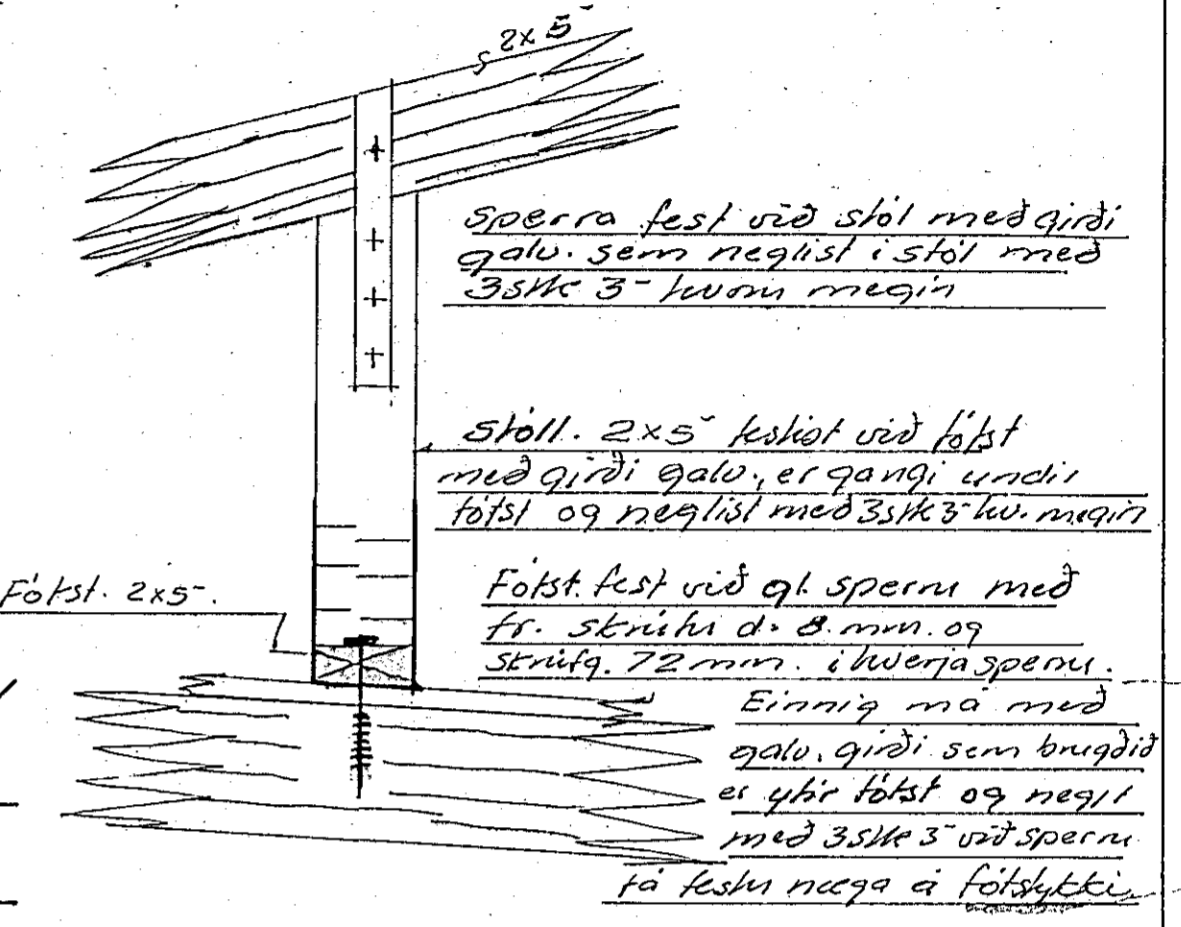 2x5"
Sperra fest við stól með girði
galv. sem neglist i stól með
3stk 3" hvoru megin
Stóll. 2x5" festist við fótst
með girði galv., er gangi undir
fótst og neglist með 3stk 3" hv. megin
Fótst. 2x5".
Fótst. fest við gl. sperru með
fr. skrúfu d= 8 mm. og
skrúfg. 72 mm. i hverja sperru.
Einnig má með
galv. girði sem brugðið
er yfir fótst og neglt
með 3stk 3" við sperru
fá festu næga á fótstykki